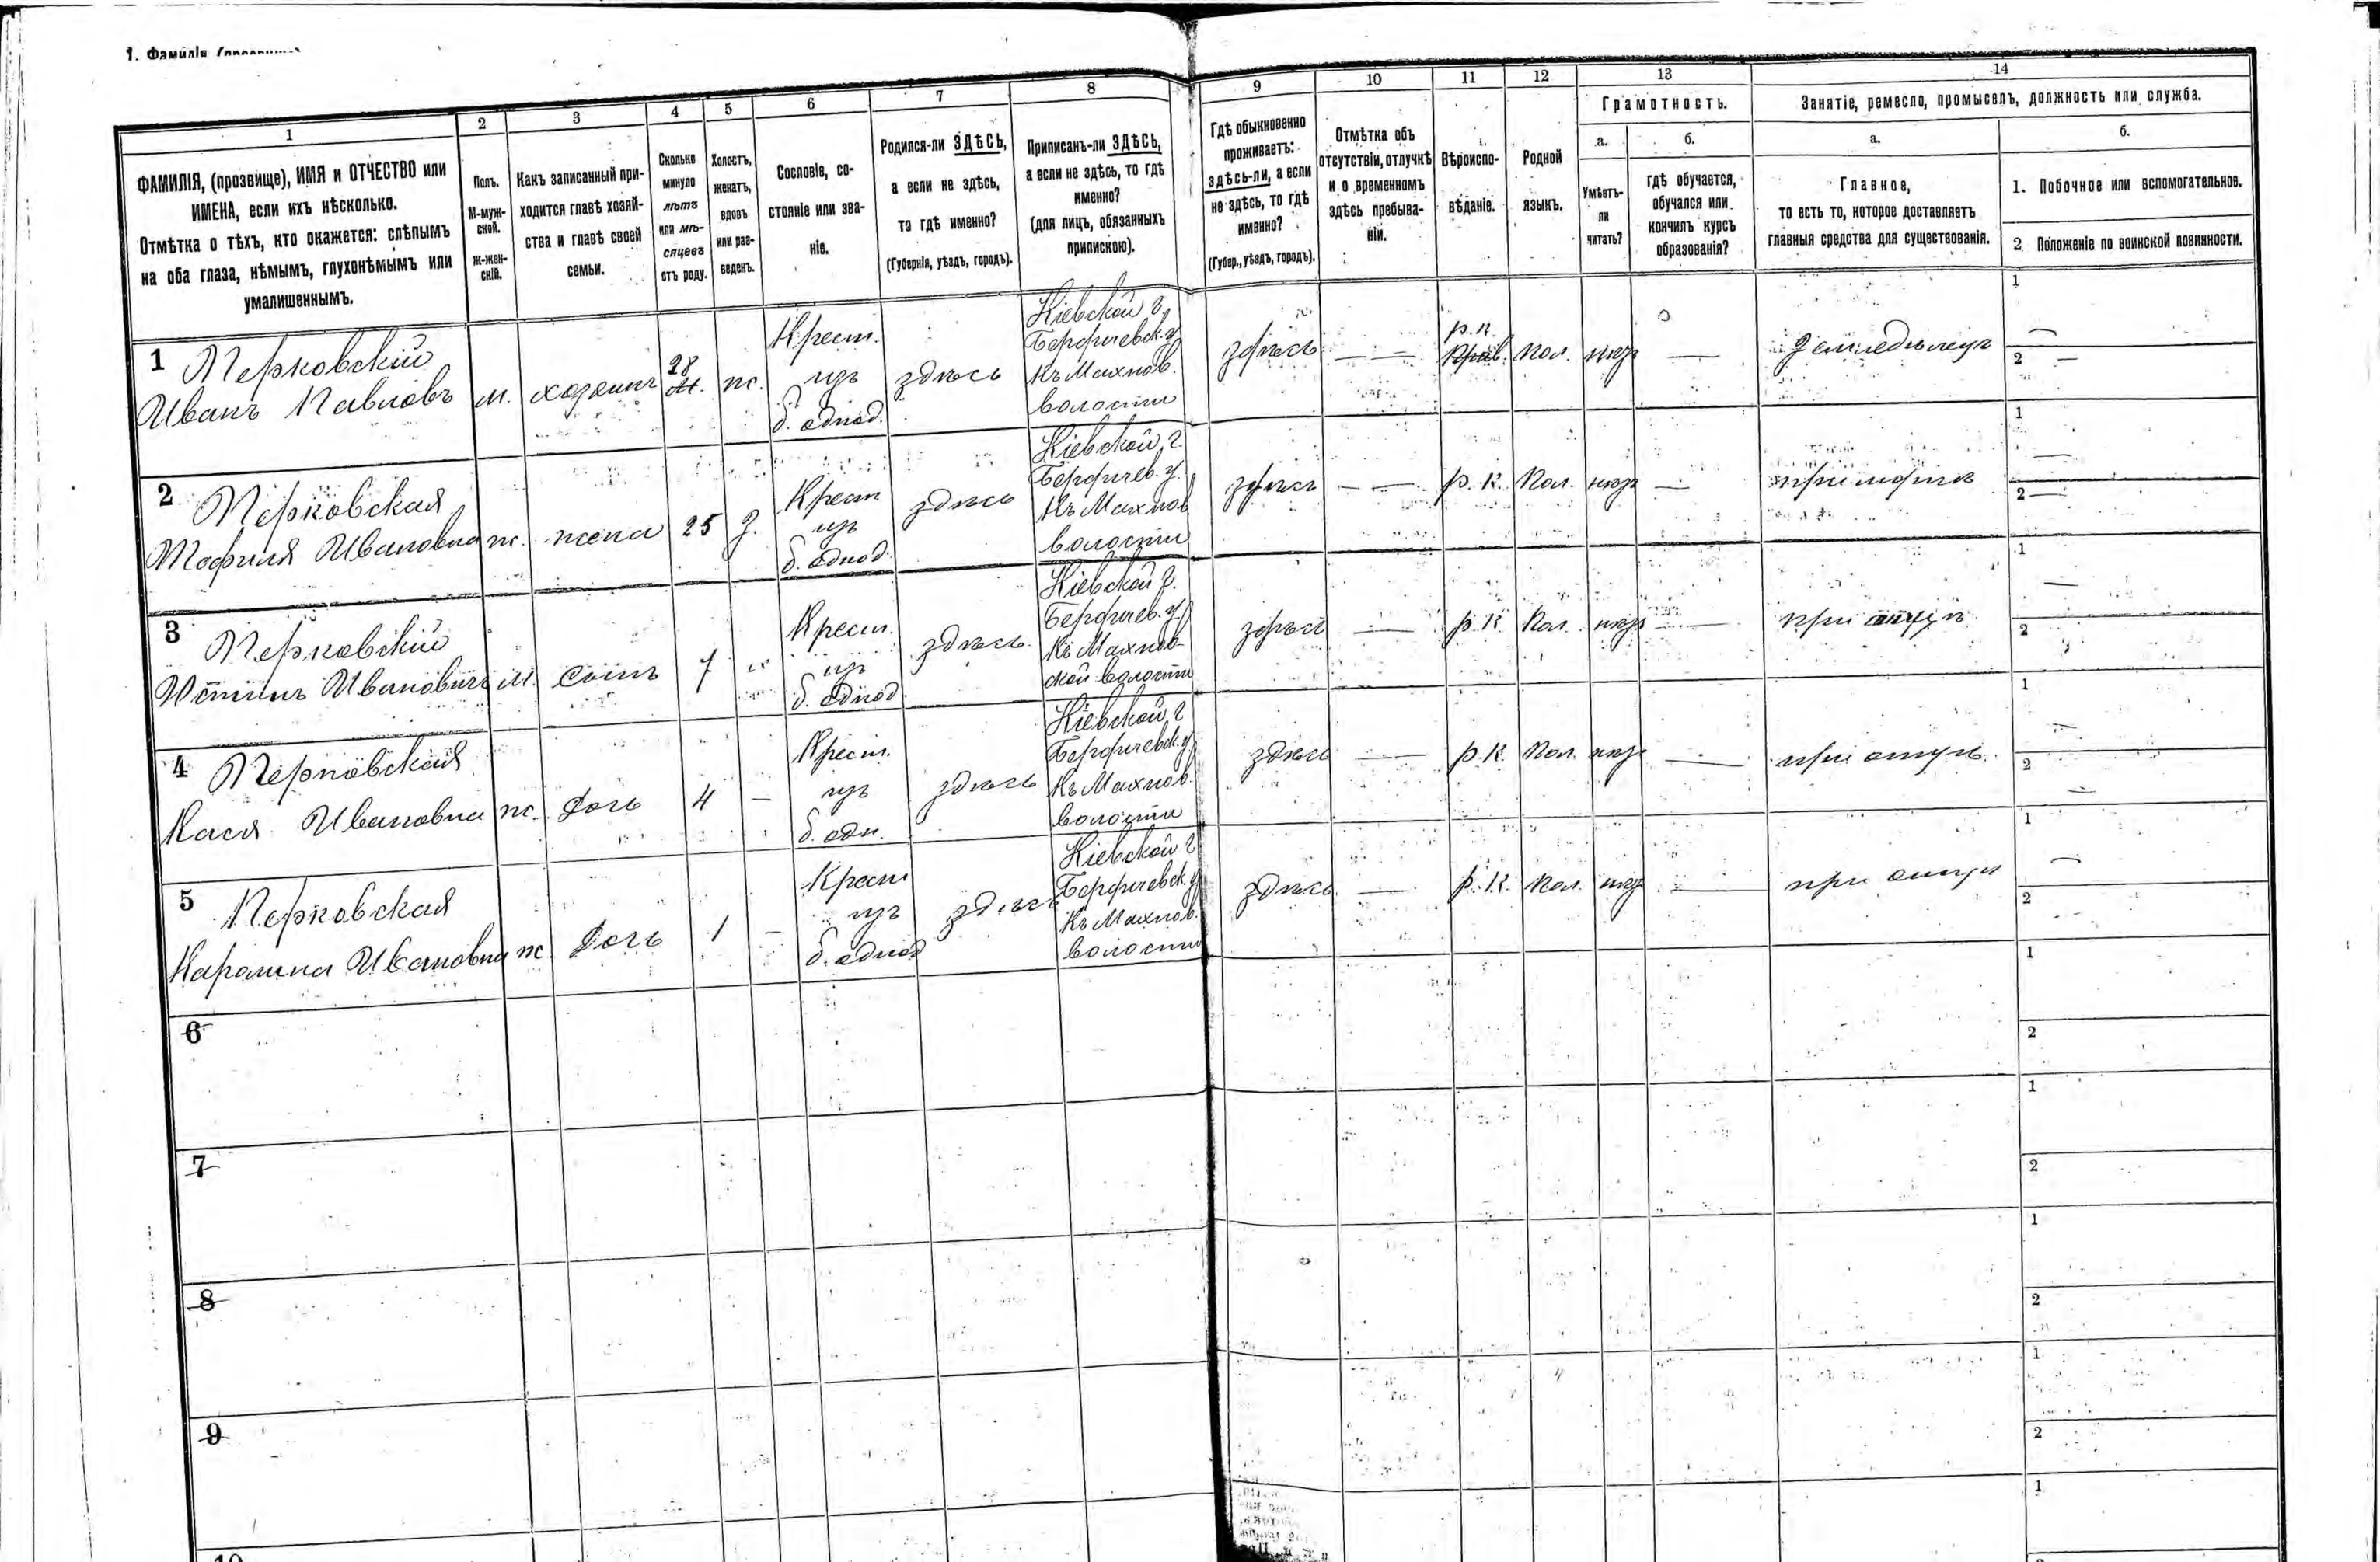 1. Фамилія
1
2
3
4
5
6
7
8
9
10
11
12
13
14
ФАМИЛІЯ, (прозвище), ИМЯ и ОТЧЕСТВО или
ИМЕНА, если ихъ нѣсколько.
Отмѣтка о тѣхъ, кто окажется: слѣпымъ
на оба глаза, нѣмымъ, глухонѣмымъ или
умалишеннымъ.
Полъ.
М-муж-
ской.
Ж-жен-
скій.
Какъ записанный при-
ходится главѣ хозяй-
ства и главѣ своей
семьи.
Сколько
минуло
лѣтъ
или мѣ-
сяцевъ
отъ роду.
Холостъ,
женатъ,
вдовъ
или раз-
веденъ.
Сословіе, со-
стояніе или зва-
ніе.
Родился-ли ЗДѢСЬ,
а если не здѣсь,
то гдѣ именно?
(Губернія, уѣздъ, городъ).
Приписанъ-ли ЗДѢСЬ,
а если не здѣсь, то гдѣ
именно?
(для лицъ, обязанныхъ
припискою).
Гдѣ обыкновенно
проживаетъ:
здѣсь-ли, а если
не здѣсь, то гдѣ
именно?
(Губер., уѣздъ, городъ).
Отмѣтка объ
отсутствіи, отлучкѣ
и о временномъ
здѣсь пребыва-
ніи.
Вѣроиспо-
вѣданіе.
Родной
языкъ.
Грамотность.
а.
Умѣетъ-
ли
читать?
б.
гдѣ обучается,
обучался или
кончилъ курсъ
образованія?
Занятіе, ремесло, промыселъ, должность или служба.
а.
Главное,
то есть то, которое доставляетъ
главныя средства для существованія.
б.
1. Побочное или вспомогательное.
2 Положеніе по воинской повинности.
1 Перковскій
Иванъ Павловъ
м.
хозяинъ
28
ж.
Крест.
изъ
б. однод.
здѣсь
Кіевской г.
Бердичевск. у
Къ Махнов.
волости
здѣсь
р. к.
Прав.
пол.
нѣтъ
Земледѣлецъ
1
2
2 Перковская
Теофиля Ивановна
ж.
жена
25
з.
Крест
изъ
б. однод.
здѣсь
Кіевской г.
Бердичев. у.
Къ Махнов
волости
здѣсь
р. к.
Пол.
нѣтъ
при мужѣ
1
2
3 Перковскій
Устинъ Ивановичъ
м.
сынъ
7
Крест.
изъ
б. однод
здѣсь
Кіевской г.
Бердичев. у
Къ Махнов-
ской волости
здѣсь
р. к.
Пол.
нѣтъ
при отцѣ
1
2
4 Перковская
Кася Ивановна
ж.
Дочь
4
Крест.
изъ
б. одн.
здѣсь
Кіевской г
Бердичевск. у
Къ Махнов.
волости
здѣсь
р. к.
Пол.
нѣтъ
при отцѣ
1
2
5 Перковская
Каролина Ивановна
ж
Дочь
1
Крест
изъ
б. однод
здѣсь
Кіевской г
Бердичевск. у
Къ Махнов.
волости
здѣсь
р. к.
Пол.
нѣтъ
при отцѣ
1
2
6
1
2
7
1
2
8
1
2
9
1
2
10
1